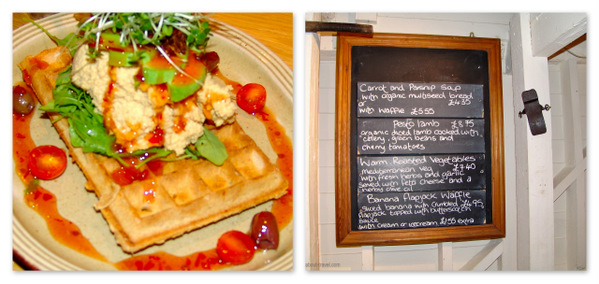 Carrot and Parsnip Soup
with organic multiseed bread
or £4.35
with Waffle £5.55
Pesto Lamb £8.75
organic diced lamb cooked with
celery, green beans and
cherry tomatoes
Warm Roasted Vegetables
Mediterranean veg £7.40
with fresh herbs and garlic
served with feta cheese and a
herby olive oil
Banana Flapjack Waffle
sliced banana with crumbled £4.95
flapjack topped with butterscotch
sauce
with cream or icecream extra